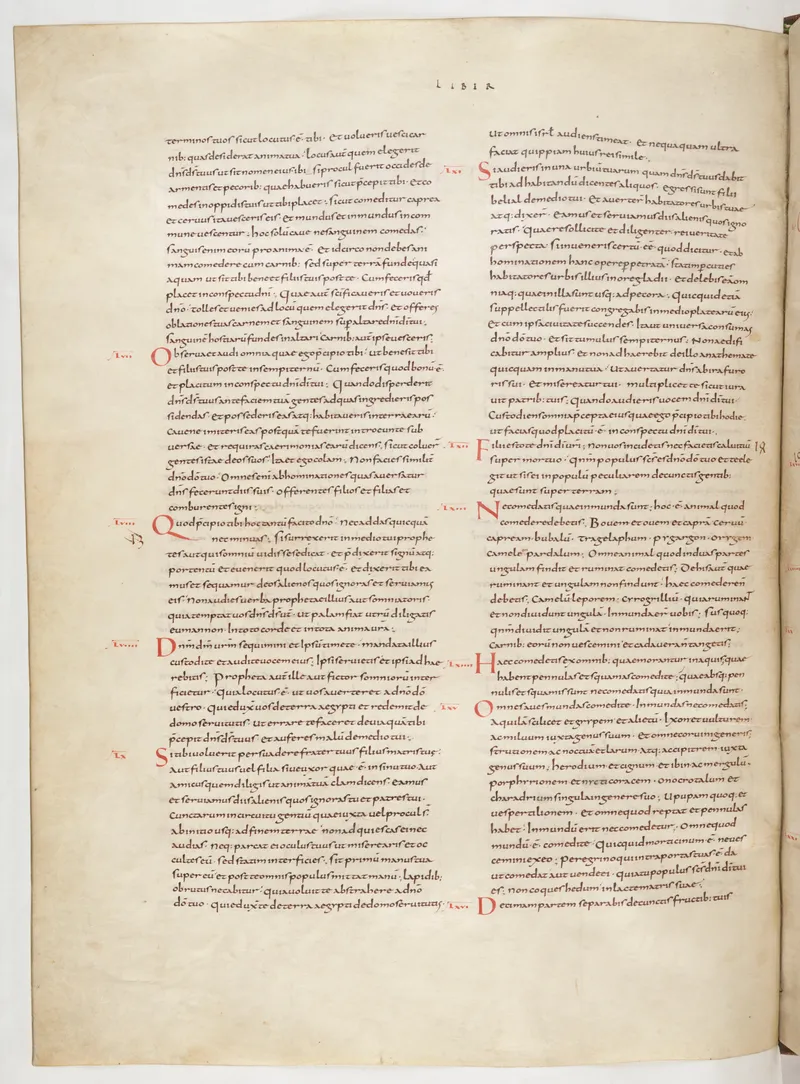 LIBER
terminos tuos sicut locutus ē tibi · Et uolueris uesci car
nib; quas desiderat anima tua · locus aūt quem elegerit
dn̄s d̄s tuus ut sit nomen eius ibi · si procul fuerit occides de
armentis et pecorib; quae habueris sicut p̄cepi tibi · et co
medes in oppidis tuis ut tibi placet ; sicut comeditur caprea
et ceruus ita uesceris eis · et mundus et inmundus in com
mune uescentur ; hoc solū caue ne sanguinem comedas ·
sanguis enim eorū pro anima ē · et idcirco non debes ani
mam comedere cum carnib; sed super terrā fundes quasi
aquam ut sit tibi bene et filiis tuis post te · Cum feceris qd
placet in conspectu dn̄i ; Quae aūt sc̄ificaueris et uoueris
dn̄o · tolles et uenies ad locū quem elegerit dn̄s · et offeres
oblationes tuas carnem et sanguinem sup altare dn̄i d̄i tui ;
sanguinē hostiarū fundes in altari · carnib; aūt ipse uesceris ;
Lvii Obserua et audi omnia quae ego p̄cipio tibi · ut bene sit tibi
et filiis tuis post te in sempiternū · Cum feceris quod bonū ē
et placitum in conspectu dn̄i d̄i tui ; Quando disperderit
dn̄s d̄s tuus ante faciem tuā gentes ad quas ingredieris pos
sidendas · et possederis eas atq; habitaueris in terra earū ·
Caue ne imiteris eas postquā te fuerint introeunte sub
uersae · et requiras caerimonias earū dicens · sicut coluer̄
gentes istae deos suos · Ita et ego colam ; Non facies similit̄
dn̄o d̄o tuo · Omnes enī abhominationes quas auersatur
dn̄s fecerunt diis suis · offerentes filios et filias et
comburentes igni ;
Lviii Quod p̄cipio tibi hoc tantū facito dn̄o · nec addas quicquā
nec minuas ; si surrexerit in medio tui prophe
tes aut qui somniū uidisse se dicat · et p̄dixerit signū atq;
portentū et euenerit quod locutus ē · et dixerit tibi ea
mus et sequamur deos alienos quos ignoras et seruiamus
eis · non audies uerba prophetae illius aut somniatoris ·
quia temptat uos dn̄s d̄s ur̄ · ut palam fiat utrū diligatis
eum an non · In toto corde et in tota anima ur̄a ;
Lviiii Dn̄m d̄m ur̄m sequimini et ipsū timete · mandata illius
custodite et audite uocem eius ; ipsi seruietis et ipsi adhae
rebitis ; Propheta aūt ille aut fictor somniorū inter
ficietur · quia locutus ē · ut uos auerteret a dn̄o d̄o
uestro · qui eduxit uos de terra aegypti et redemit de
domo seruitutis · ut errare te faceret de uia quā tibi
p̄cepit dn̄s d̄s tuus · et auferes malū de medio tui ;
Lx Si tibi uoluerit persuadere frater tuus filius matris tuae ·
Aut filius tuus uel filia siue uxor quae ē in sinu tuo aut
amicus quem diligis ut animā tuā clam dicens · eamus
et seruiamus diis alienis quos ignoras tu et patres tui ·
Cunctarum in circuitu gentiū quae iuxta uel procul s̄ ·
ab initio usq; ad finem terrae · non adquiescas ei nec
audias · neq; parcat ei oculus tuus ut miserearis et oc
cultes eū · sed statim interficies ; sit primū manus tua
super eū et post te omnis populus mittat manū ; lapidib;
obrutus necabitur · quia uoluit te abstrahere a dn̄o
d̄o tuo · qui eduxit te de terra aegypti de domo seruitutis ·
ut omnis isrl audiens timeat · et nequaquam ultra
faciat quippiam huius rei simile ·
Lxi Si audieris in una urbiū tuarum quam dn̄s d̄s tuus dabit
tibi ad habitandū dicentes aliquos · egressi sunt filii
belial de medio tui · et auerter̄ habitatores urbis tuae
atq; dixer̄ · eamus et seruiamus diis alienis quos igno
ratis · Quaere sollicite et diligenter rei ueritate
perspecta · si inueneris certū eē quod dicitur · et ab
hominationem hanc opere ppetratā · statim pcuties
habitatores urbis illius in ore gladii · et delebis eam
omniaq; quae in illa sunt usq; ad pecora ; Quicquid etiā
suppellectilis fuerit congregabis in medio platearū eius ·
et cum ipsa ciuitate succendes · Ita ut uniuersa consumas
dn̄o d̄o tuo · et sit tumulus sempiternus ; Non aedifi
cabitur amplius · et non adhaerebit de illo anathemate
quicquam in manu tua · Ut auertatur dn̄s ab ira furo
ris sui · et misereatur tui · multiplicet te sicut iura
uit patrib; tuis ; Quando audieris uocem dn̄i d̄i tui
Custodiens omnia p̄cepta eius quae ego p̄cipio tibi hodie ·
ut facias quod placitū ē in conspectu dn̄i d̄i tui ;
Lxii Filii estote dn̄i d̄i ur̄i ; non uos incidetis nec facietis caluitiū
super mortuo · qnm̄ populus sc̄s es dn̄o d̄o tuo et te ele
git ut sis ei in populū peculiarem de cunctis gentib;
quae sunt super terram ;
Lxiii Ne comedas quae inmunda sunt ; hoc ē animal quod
comedere debetis ; Bouem et ouem et caprā ceruū
capream bubalū · tragelaphum · pygargon · orygem
camelopardalum ; Omne animal quod in duas partes
ungulam findit et ruminat comedetis ; De his aūt quae
ruminant et ungulam non findunt · haec comedere n̄
debetis ; Camelū leporem ; Cyrogrilliū · quia ruminant
et non diuidunt ungulā · Inmunda er̄ uobis ; sus quoq;
qnm̄ diuidit ungulā et non ruminat inmunda erit ;
Carnib; eorū non uescemini et cadauera n̄ tangetis ;
Lxiiii Haec comedetis ex omnib; quae morantur in aquis quae
habent pennulas et squamas comedite ; quae absq; pen
nulis et squamis sunt ne comedatis quia inmunda sunt ·
Lxv Omnes aues mundas comedite · Inmundas ne comedatis ;
Aquilā scilicet et grypem et alietū · Ixon et uulturem
ac miluum iuxta genus suum · et omne coruini generis ;
strutionem ac noctuā et larum atq; accipitrem iuxta
genus suum ; herodium et cignum et ibin ac mergulū ·
porphyrionem et nycticoracem · onocrotalum et
charadrium singula in genere suo ; Upupam quoq; et
uespertilionem · et omne quod reptat et pennulas
habet · Inmundū erit nec comedetur ; Omne quod
mundū ē · comedite ; Quicquid morticinum ē ne ues
cemini ex eo ; peregrino qui intra portas tuas ē da
ut comedat aut uende ei · quia tu populus sc̄s dn̄i d̄i tui
es ; non coques hedum in lacte matris suae ;
Lxvi Decimam partem separabis de cunctis fructib; tuis